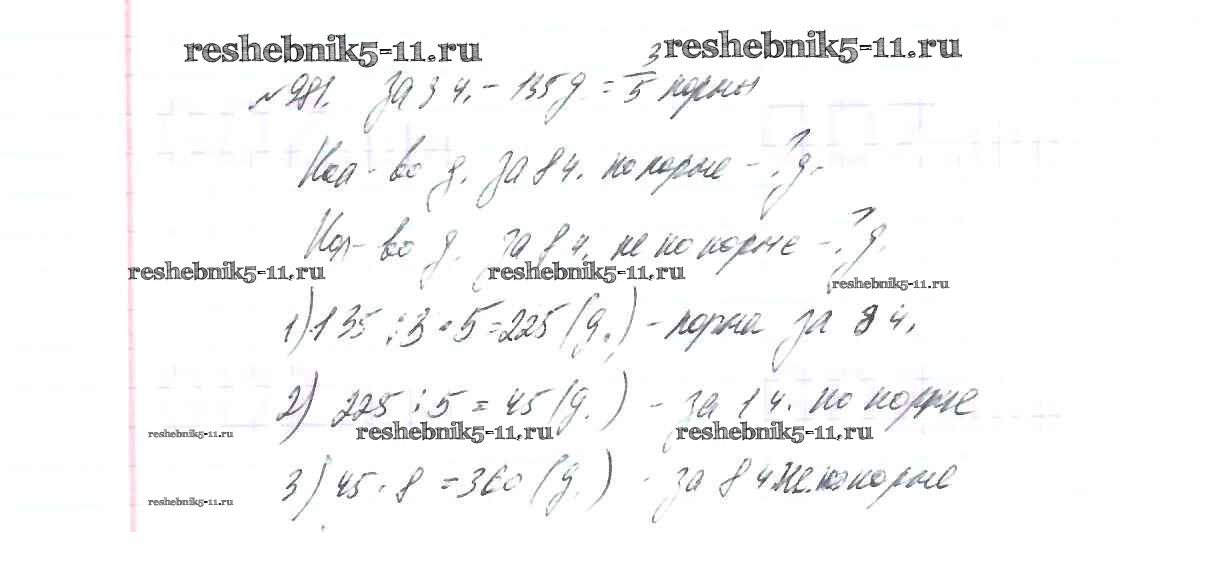 reshebnik5-11.ru reshebnik5-11.ru
№981. За 3 ч. - 135 д. = 3/5 нормы
Кол-во д. за 8 ч. по норме - ? д.
Кол-во д. за 8 ч. не по норме - ? д.
reshebnik5-11.ru reshebnik5-11.ru reshebnik5-11.ru
1) 135 : 3 · 5 = 225 (д.) - норма за 8 ч.
2) 225 : 5 = 45 (д.) - за 1 ч. по норме
reshebnik5-11.ru reshebnik5-11.ru reshebnik5-11.ru
3) 45 · 8 = 360 (д.) - за 8 ч. не по норме
reshebnik5-11.ru